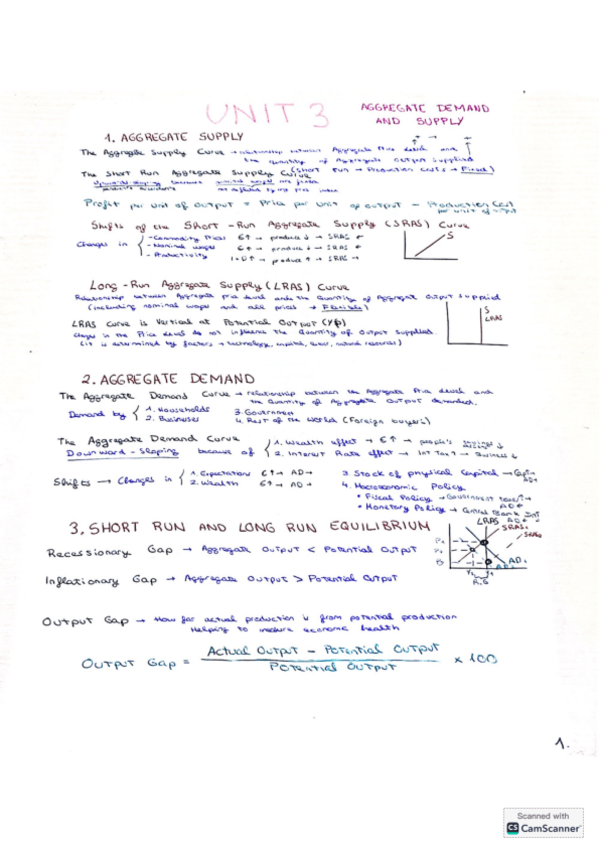 UNIT 3
AGGREGATE DEMAND
AND SUPPLY
1. AGGREGATE SUPPLY
The Aggregate Supply Curve → relationship between Aggregate Price levels and
the quantity of Aggregate Output Supplied
The Short Run Aggregate Supply Curve (short run → Production costs → Fixed)
Upward-sloping because nominal wages are
Profit per unit of output = Price per unit of output - Production Cost
per unit of output
Shifts of the Short-Run Aggregate Supply (SRAS) Curve
Changes in
- Commodity Prices €↑ → produce ↓ → SRAS ←
- Nominal wages €↑ → produce ↓ → SRAS ←
- Productivity → product ↑ → SRAS →
S
Long-Run Aggregate Supply (LRAS) Curve
Relationship between Aggregate price level and the Quantity of Aggregate Output Supplied
(including nominal wages and all prices → Flexible)
S
LRAS
LRAS Curve is Vertical at Potential Output (Yp)
in the Price levels do not influence the Quantity of Output Supplied.
(it is determined by factors → technology, capital, labor, natural resources)
2. AGGREGATE DEMAND
The Aggregate Demand Curve → relationship between the Aggregate Price levels and
the Quantity of Aggregate Output demanded.
Demand by
1. Households 3. Government
2. Businesses 4. Rest of the World (Foreign buyers)
The Aggregate Demand Curve
Downward-Sloping because of
1. Wealth effect → €↑ → people's
2. Interest Rate effect → Int rat ↑ → Business ↓
Shifts → Changes in
1. Expectations €↑ → AD → 3. Stock of physical capital →
2. Wealth €↑ → AD → 4. Macroeconomic Policy
• Fiscal Policy → Government
• Monetary Policy → Central Bank
3. SHORT RUN AND LONG RUN EQUILIBRIUM
LRAS
SRAS₁
SRAS₂
AD₁
R.G
Recessionary Gap → Aggregate Output < Potential Output
Inflationary Gap → Aggregate Output > Potential Output
Output Gap → How far actual production is from potential production
Helping to measure economic health
Output Gap = Actual Output - Potential Output
Potential Output
x 100
1.
Scanned with
CS CamScanner